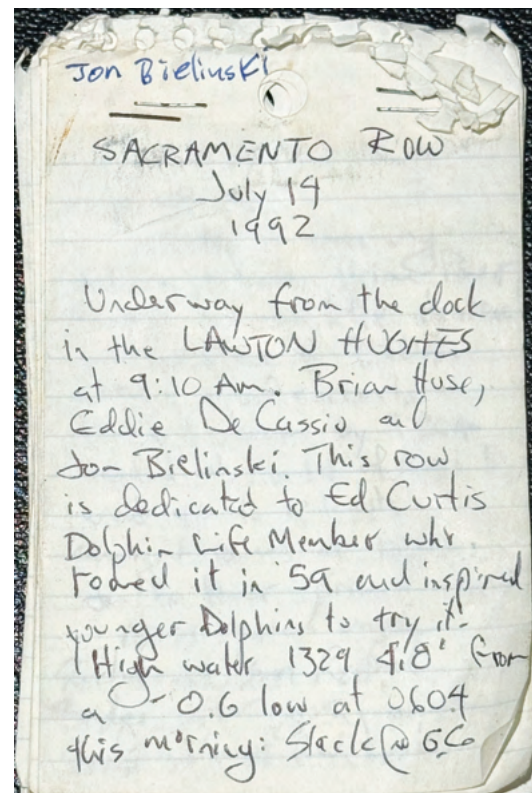 Jon Bielinski
SACRAMENTO ROW
July 14
1992
Underway from the dock
in the LAWTON HUGHES
at 9:10 Am. Brian Huse,
Eddie De Cassio and
Jon Bielinski. This row
is dedicated to Ed Curtis
Dolphin Life Member who
rowed it in '59 and inspired
younger Dolphins to try it!
High water 1329 4.8' from
a -0.6 low at 0604
this morning: Slack @ GG